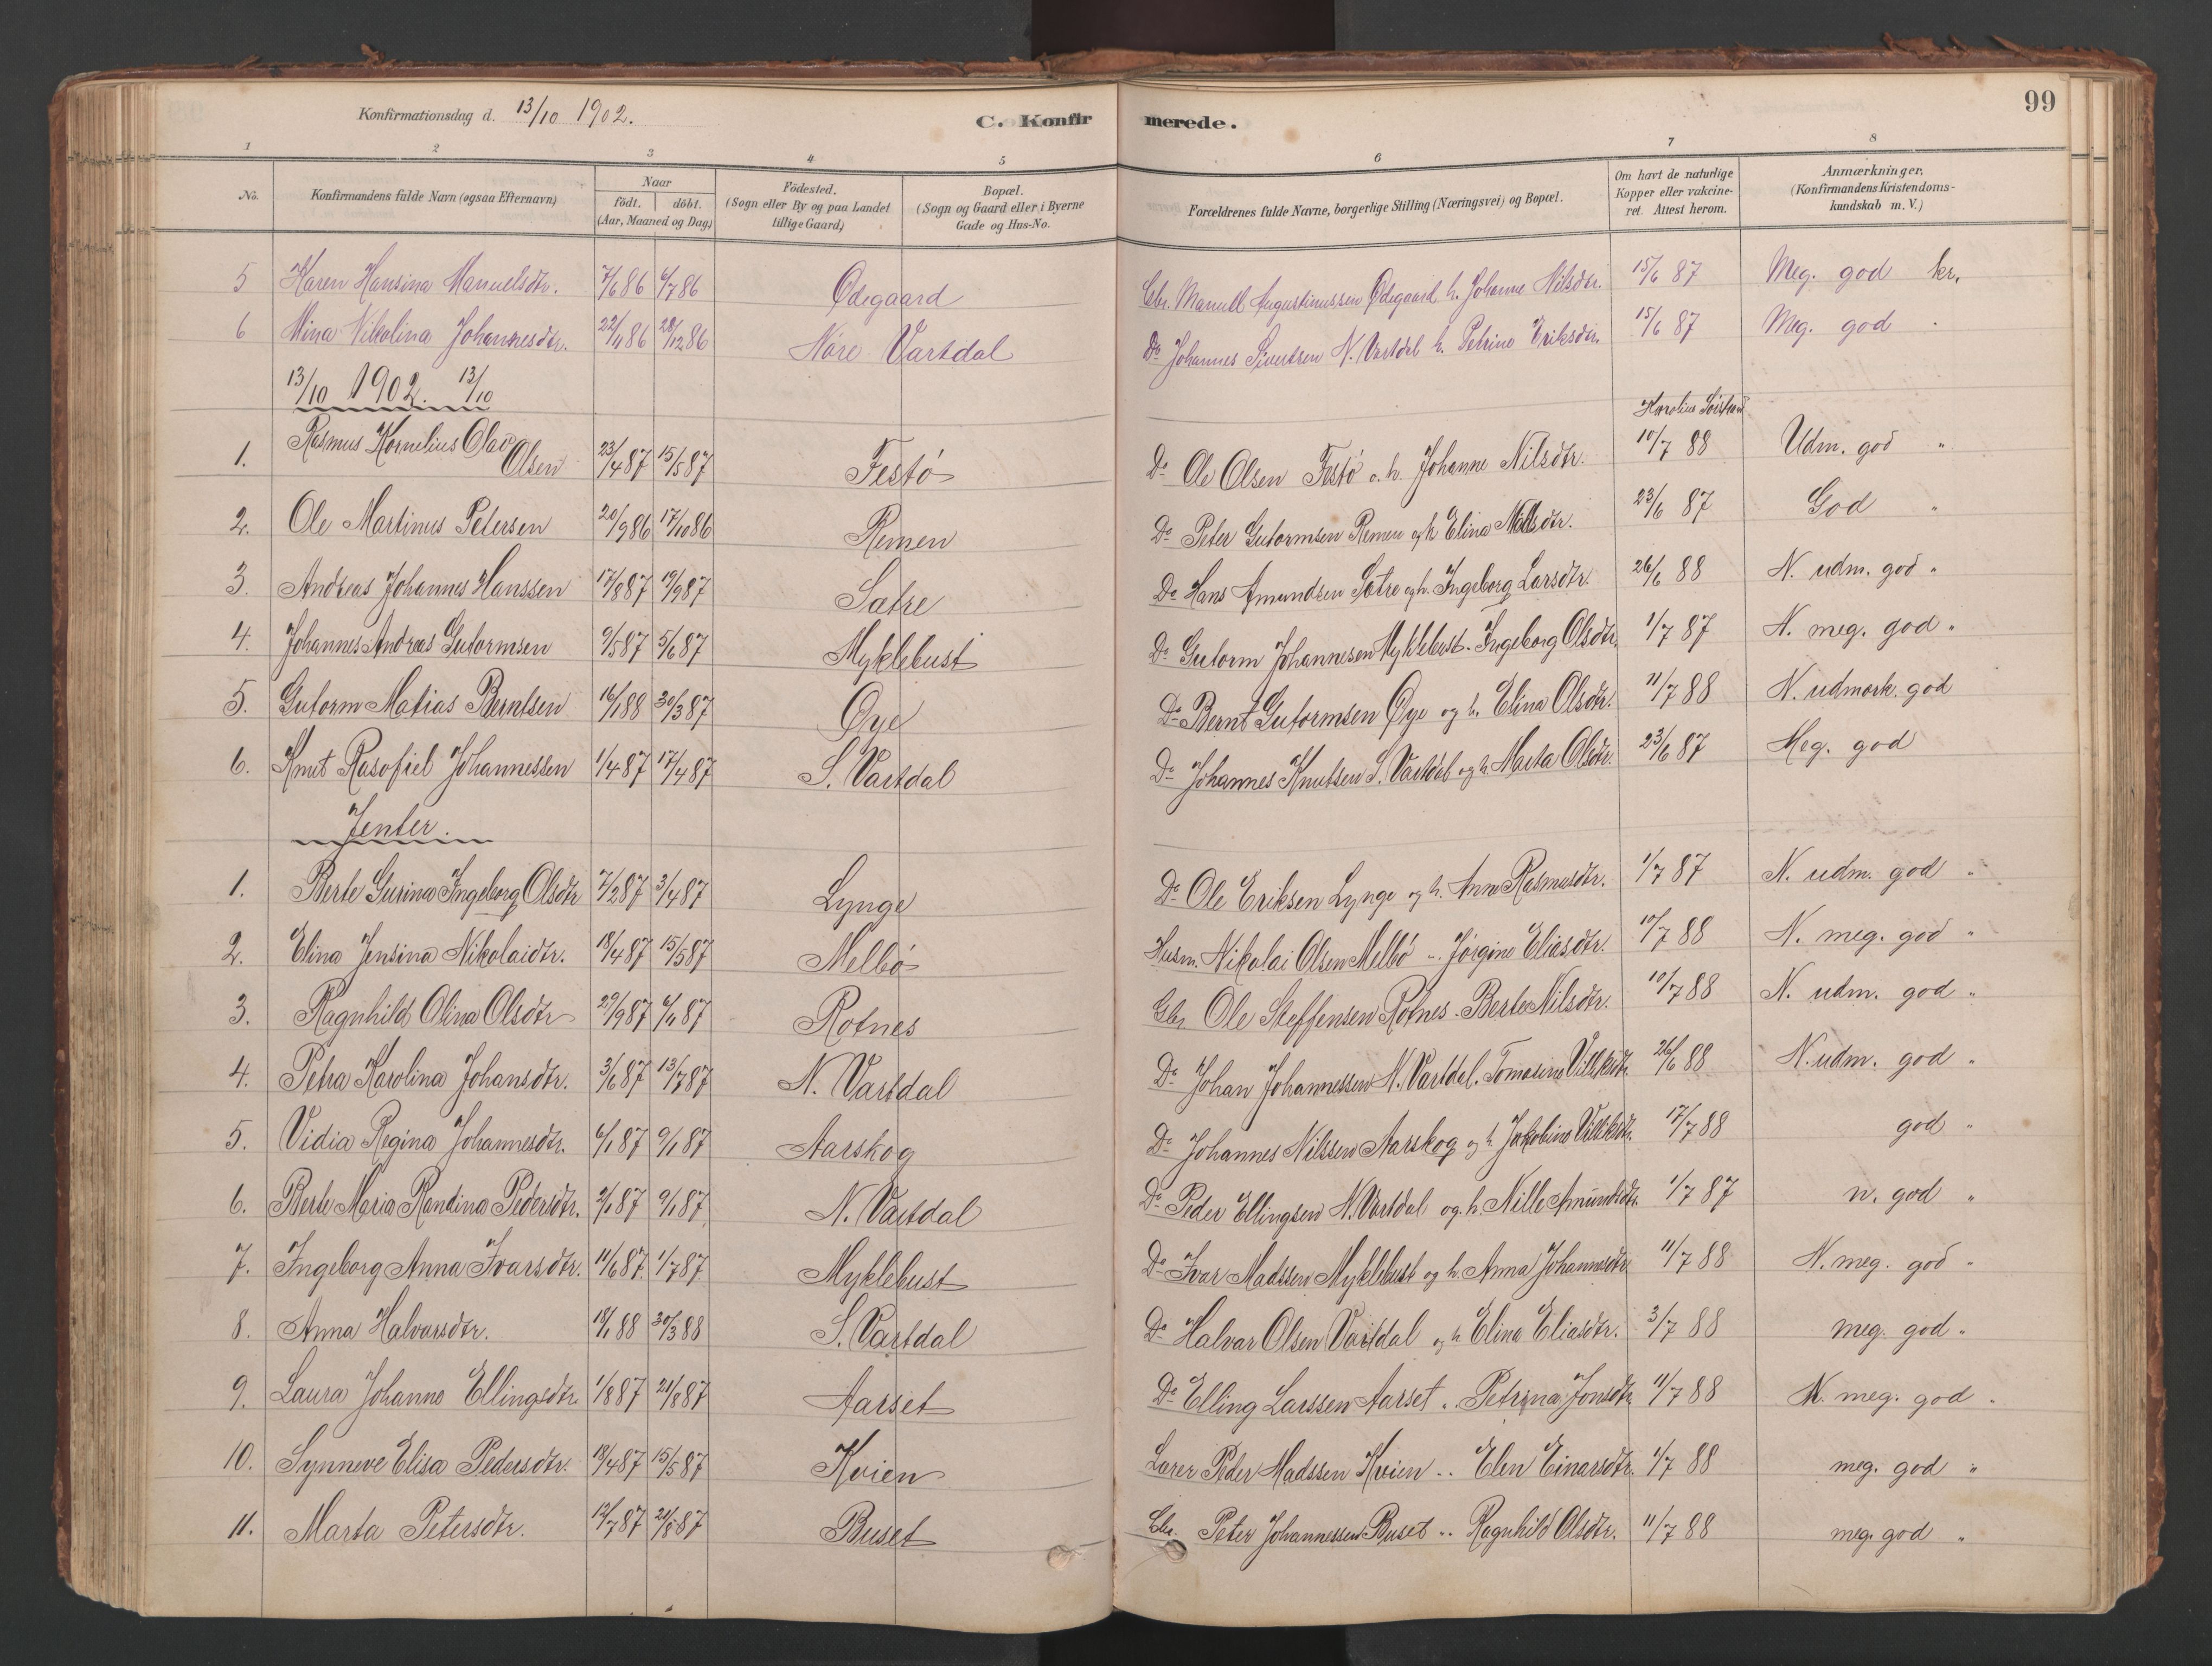 Konfirmationsdag d. 13/10 1902.
C. Konfirmerede.
99
1 2 3 4 5 6 7 8
No.
Konfirmandens fulde Navn (ogsaa Efternavn)
Naar
födt. döbt.
(Aar, Maaned og Dag)
Födested.
(Sogn eller By og paa Landet tillige Gaard)
Bopæl.
(Sogn og Gaard eller i Byerne Gade og Hus-No.
Forældrenes fulde Navne, borgerlige Stilling (Næringsvei) og Bopæl.
Om havt de naturlige Kopper eller vakcineret. Attest herom.
Anmærkninger.
(Konfirmandens Kristendomskundskab m. V.)
5 Karen Hansina Manuelsdtr. 7/6 86 6/7 86 Ødegaard Gbr. Manuel Augustinussen Ødegaard h. Johanne Nilsdtr. 15/6 87 Meg. god kr.
6 Mina Nikolina Johannesdtr. 22/11 86 28/12 86 Nore Vartdal Do Johannes Sivertsen N. Vartdal h. Petrine Eriksdtr. 15/6 87 Meg. god
13/10 1902. 13/10
1. Rasmus Kornelius Olav Olsen 23/4 87 15/5 87 Festö Do Ole Olsen Festö o. h. Johanne Nilsdtr. 10/7 88 Udm. god "
2. Ole Martinus Petersen 20/9 86 17/10 86 Remen Do Peter Gutormsen Remen og h Elina Nilsdtr. 23/6 87 God "
3. Andreas Johannes Hanssen 17/8 87 19/9 87 Sætre Do Hans Amundsen Sætre og h. Ingeborg Larsdtr. 26/6 88 N. udm. god "
4. Johannes Andreas Gutormsen 9/5 87 5/6 87 Myklebust Do Gutorm Johannesen Myklebust. Ingeborg Olsdtr. 1/7 87 N. meg. god "
5. Gutorm Matias Berntsen 16/1 88 30/3 87 Øye Do Bernt Gutormsen Øye og h. Elina Olsdtr. 11/7 88 N. udmærk. god
6. Knut Rasofiel Johannessen 1/4 87 17/4 87 S. Vartdal Do Johannes Knutsen S. Vartdal og h. Marta Olsdtr. 23/6 87 Meg. god
Jenter.
1. Berte Gurina Ingeborg Olsdtr 7/2 87 3/4 87 Lynge Do Ole Eriksen Lynge og h. Anne Rasmusdtr. 1/7 87 N. udm. god "
2. Elina Jensina Nikolaidtr. 18/4 87 15/5 87 Melbö Husm. Nikolai Olsen Melbö " Jørgine Eliasdtr. 10/7 88 N. meg. god "
3. Ragnhild Olina Olsdtr 29/9 87 6/11 87 Rotnes Gbr Ole Steffensen Rotnes - Berte Nilsdtr. 10/7 88 N. udm. god "
4. Petra Karolina Johansdtr. 3/6 87 13/7 87 N. Vartdal Do Johan Johannessen N. Vartdal. Tomasine 26/6 88 N. udm. god "
5. Vidia Regina Johannesdtr. 6/1 87 9/1 87 Aarskog Do Johannes Nilssen Aarskog og h. Jakobine 17/7 88 god "
6. Berte Maria Randina Pedersdtr. 2/1 87 9/1 87 N. Vartdal Do Peder Ellingsen N. Vartdal og h. Nille Amundsdtr. 1/7 87 n. god "
7. Ingeborg Anna Ivarsdtr. 11/6 87 1/7 87 Myklebust Do Ivar Madssen Myklebust og h. Anna Johannesdtr 11/7 88 N. meg. god "
8. Anna Halvarsdtr. 18/1 88 30/3 88 S. Vartdal Do Halvar Olsen Vartdal og h Elina Eliasdtr. 3/7 88 meg. god "
9. Laura Johanne Ellingsdtr 1/8 87 21/8 87 Aarset Do Elling Larssen Aarset " Petrina Jonsdtr. 11/7 88 N. meg. god "
10. Synneve Elisa Pedersdtr. 18/4 87 15/5 87 Kvien Lærer Peder Madssen Kvien " Elen Einarsdtr. 1/7 88 meg. god "
11. Marta Petersdtr. 12/7 87 21/8 87 Buset Gbr. Peter Johannessen Buset " Ragnhild Olsdtr. 11/7 88 meg. god "